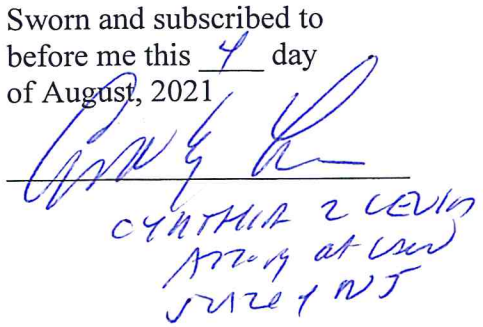 Sworn and subscribed to
before me this 4 day
of August, 2021
CYNTHIA Z LEVIN
Attorney at Law
State of NJ